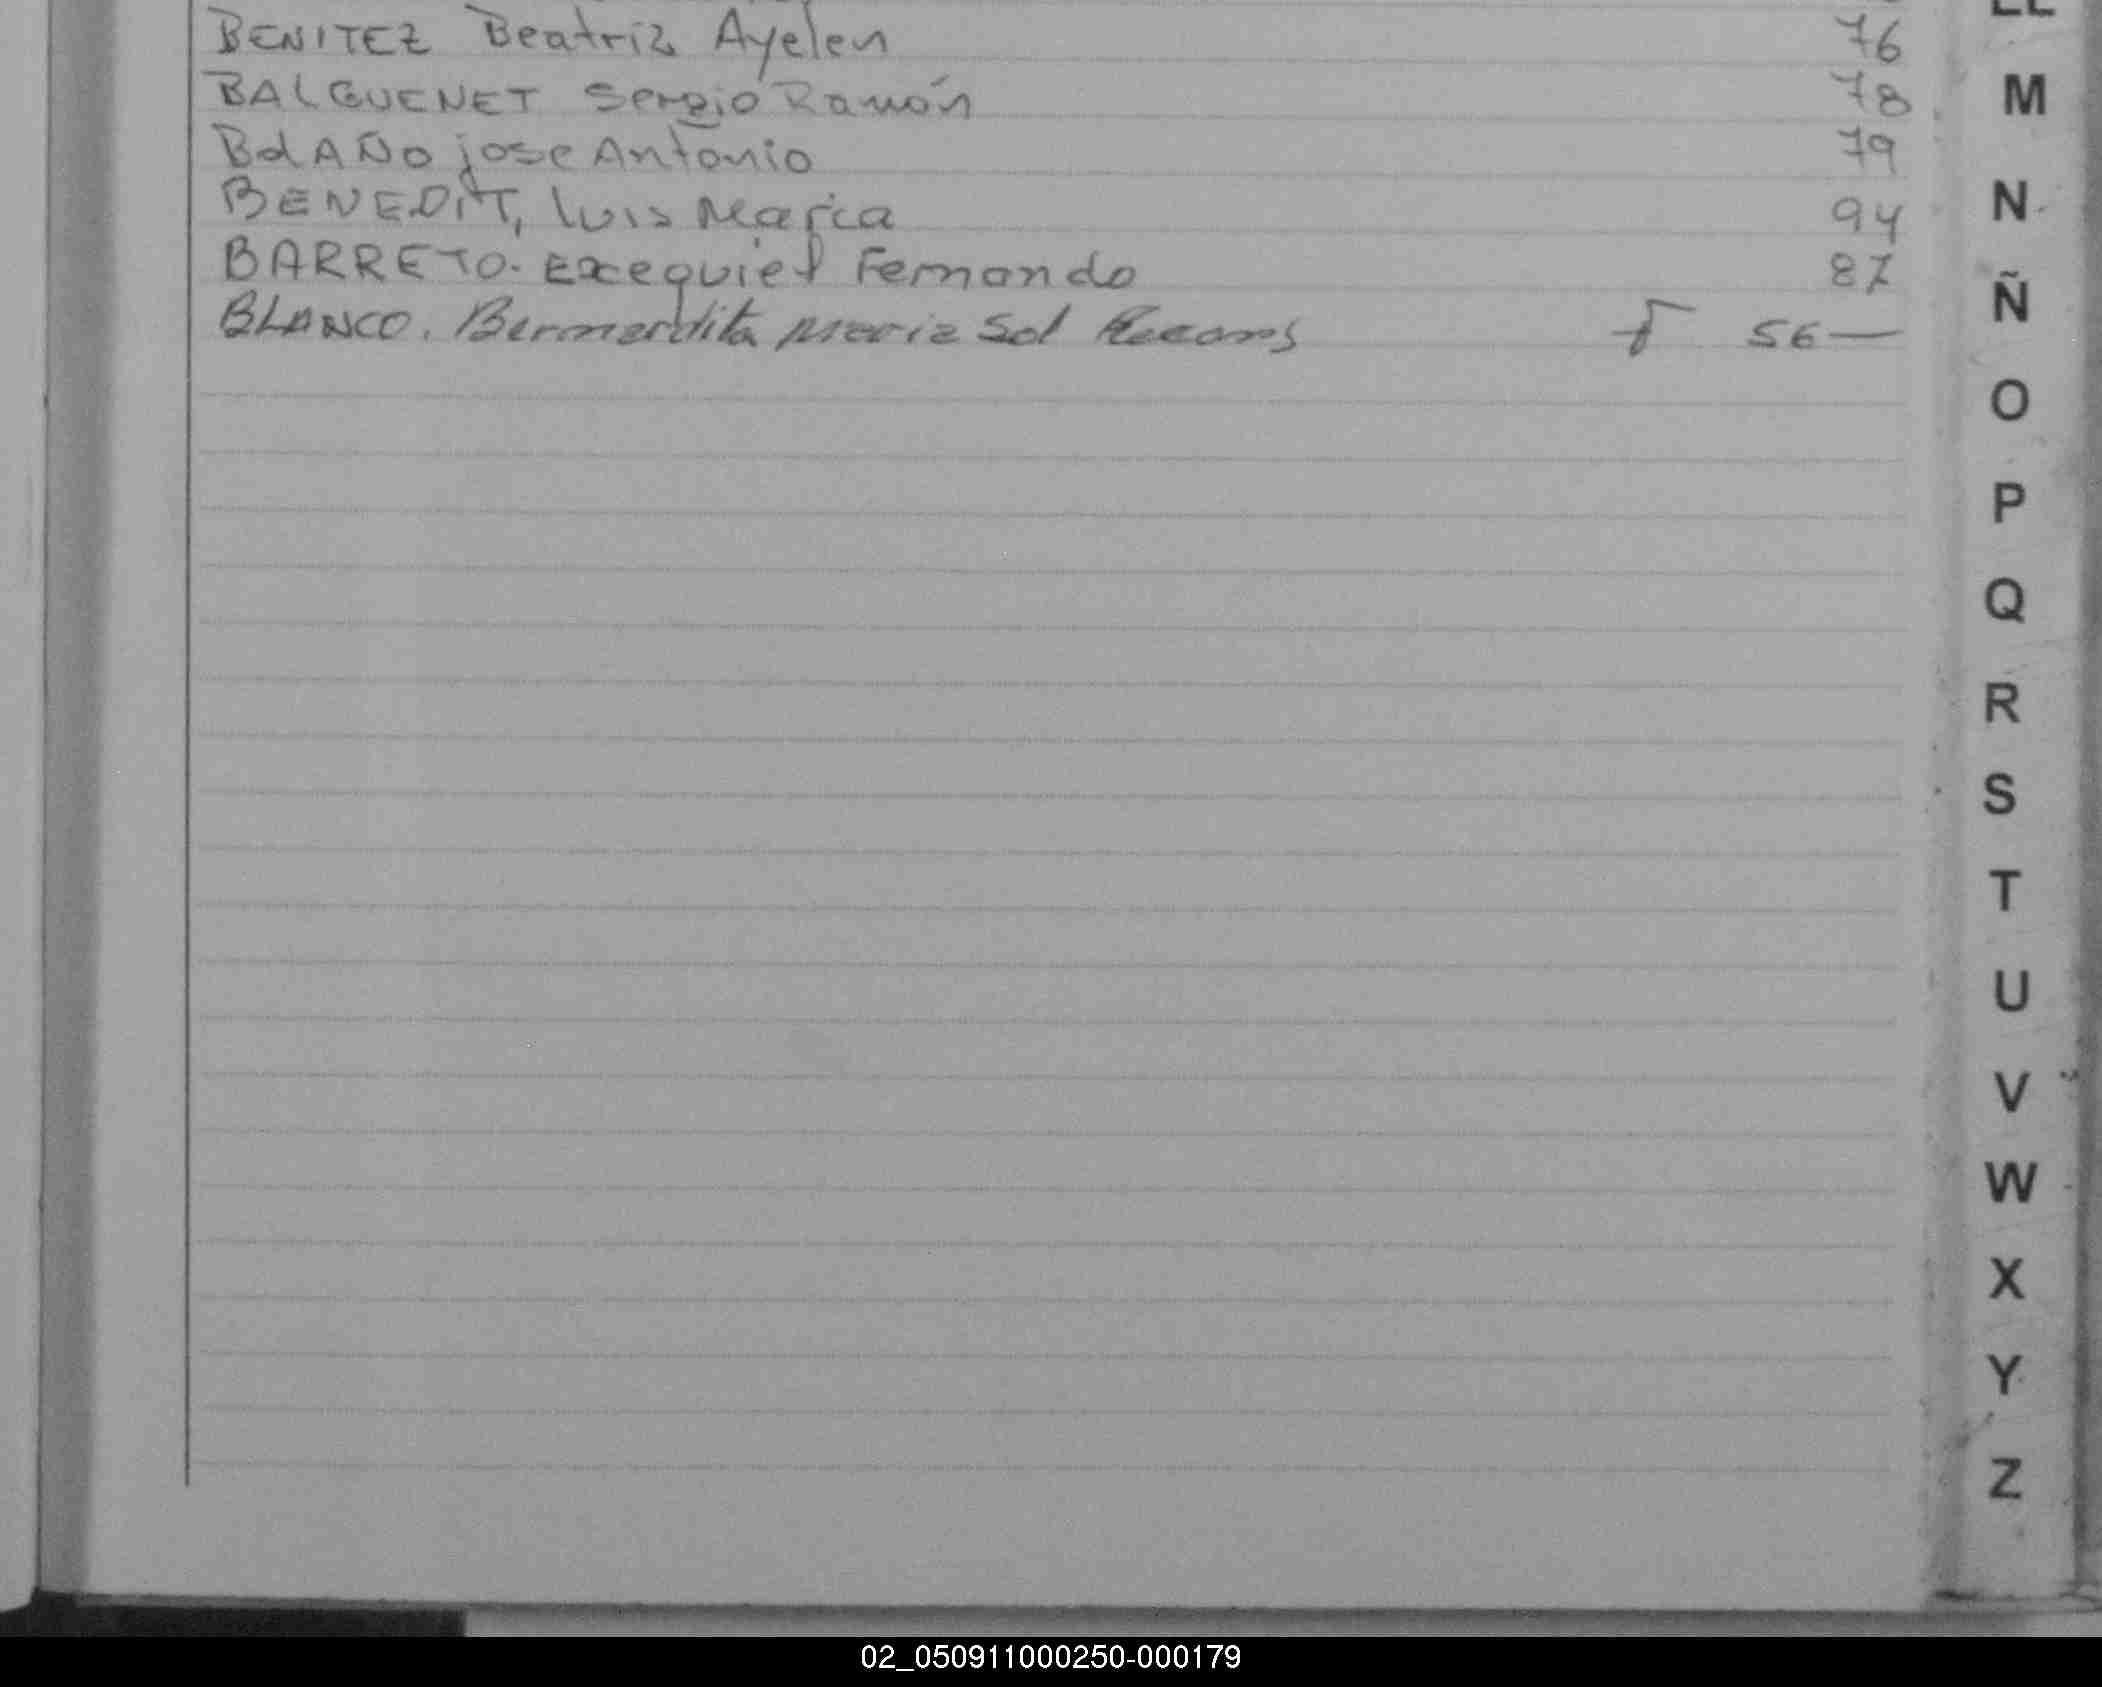 BENITEZ Beatriz Ayelen 76
BALGUENET Sergio Ramón 78
BOLAÑO jose Antonio 79
BENEDIT, luis Maria 94
BARRETO. Exequiel Fernando 87
BLANCO. Bernardita Maria Sol F 56 —
M
N
Ñ
O
P
Q
R
S
T
U
V
W
X
Y
Z
02_050911000250-000179